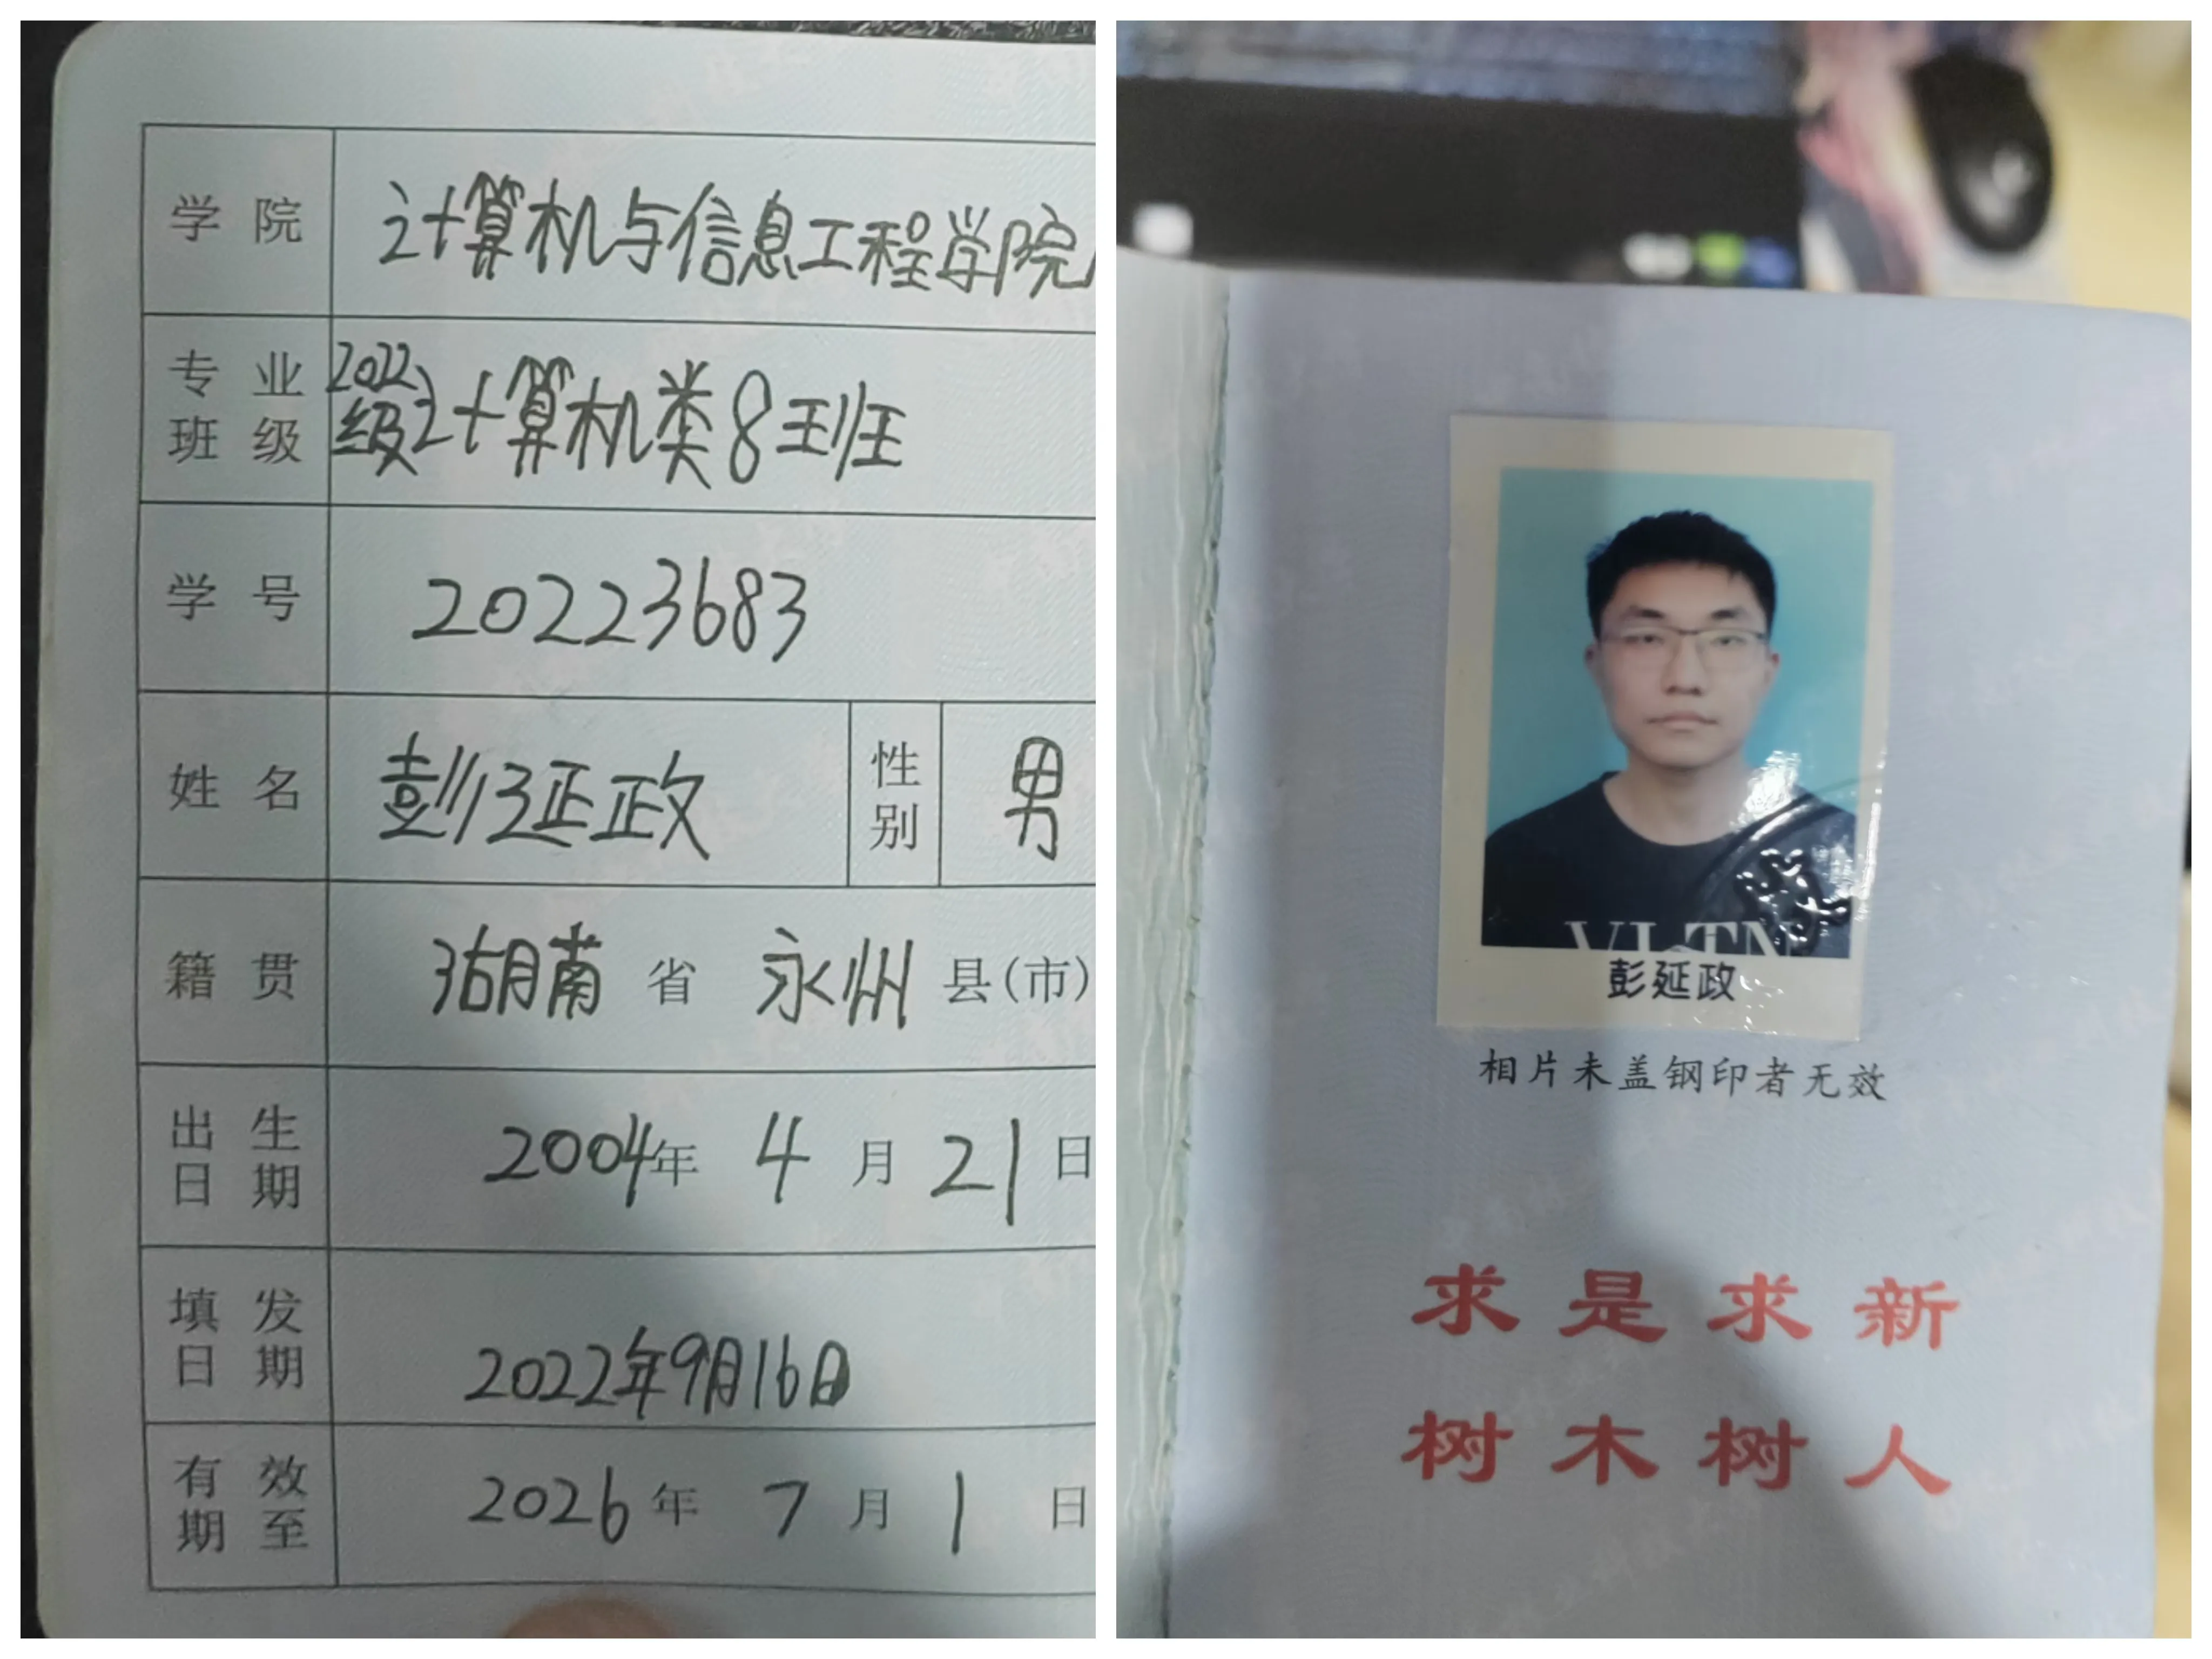 学院 计算机与信息工程学院
专业班级 2022级计算机类8班
学号 20223683
姓名 彭延政 性别 男
籍贯 湖南省 永州县(市)
出生日期 2004年 4月 21日
填发日期 2022年9月16日
有效期至 2026年 7月 1日
VLTN
彭延政
相片未盖钢印者无效
求是求新
树木树人